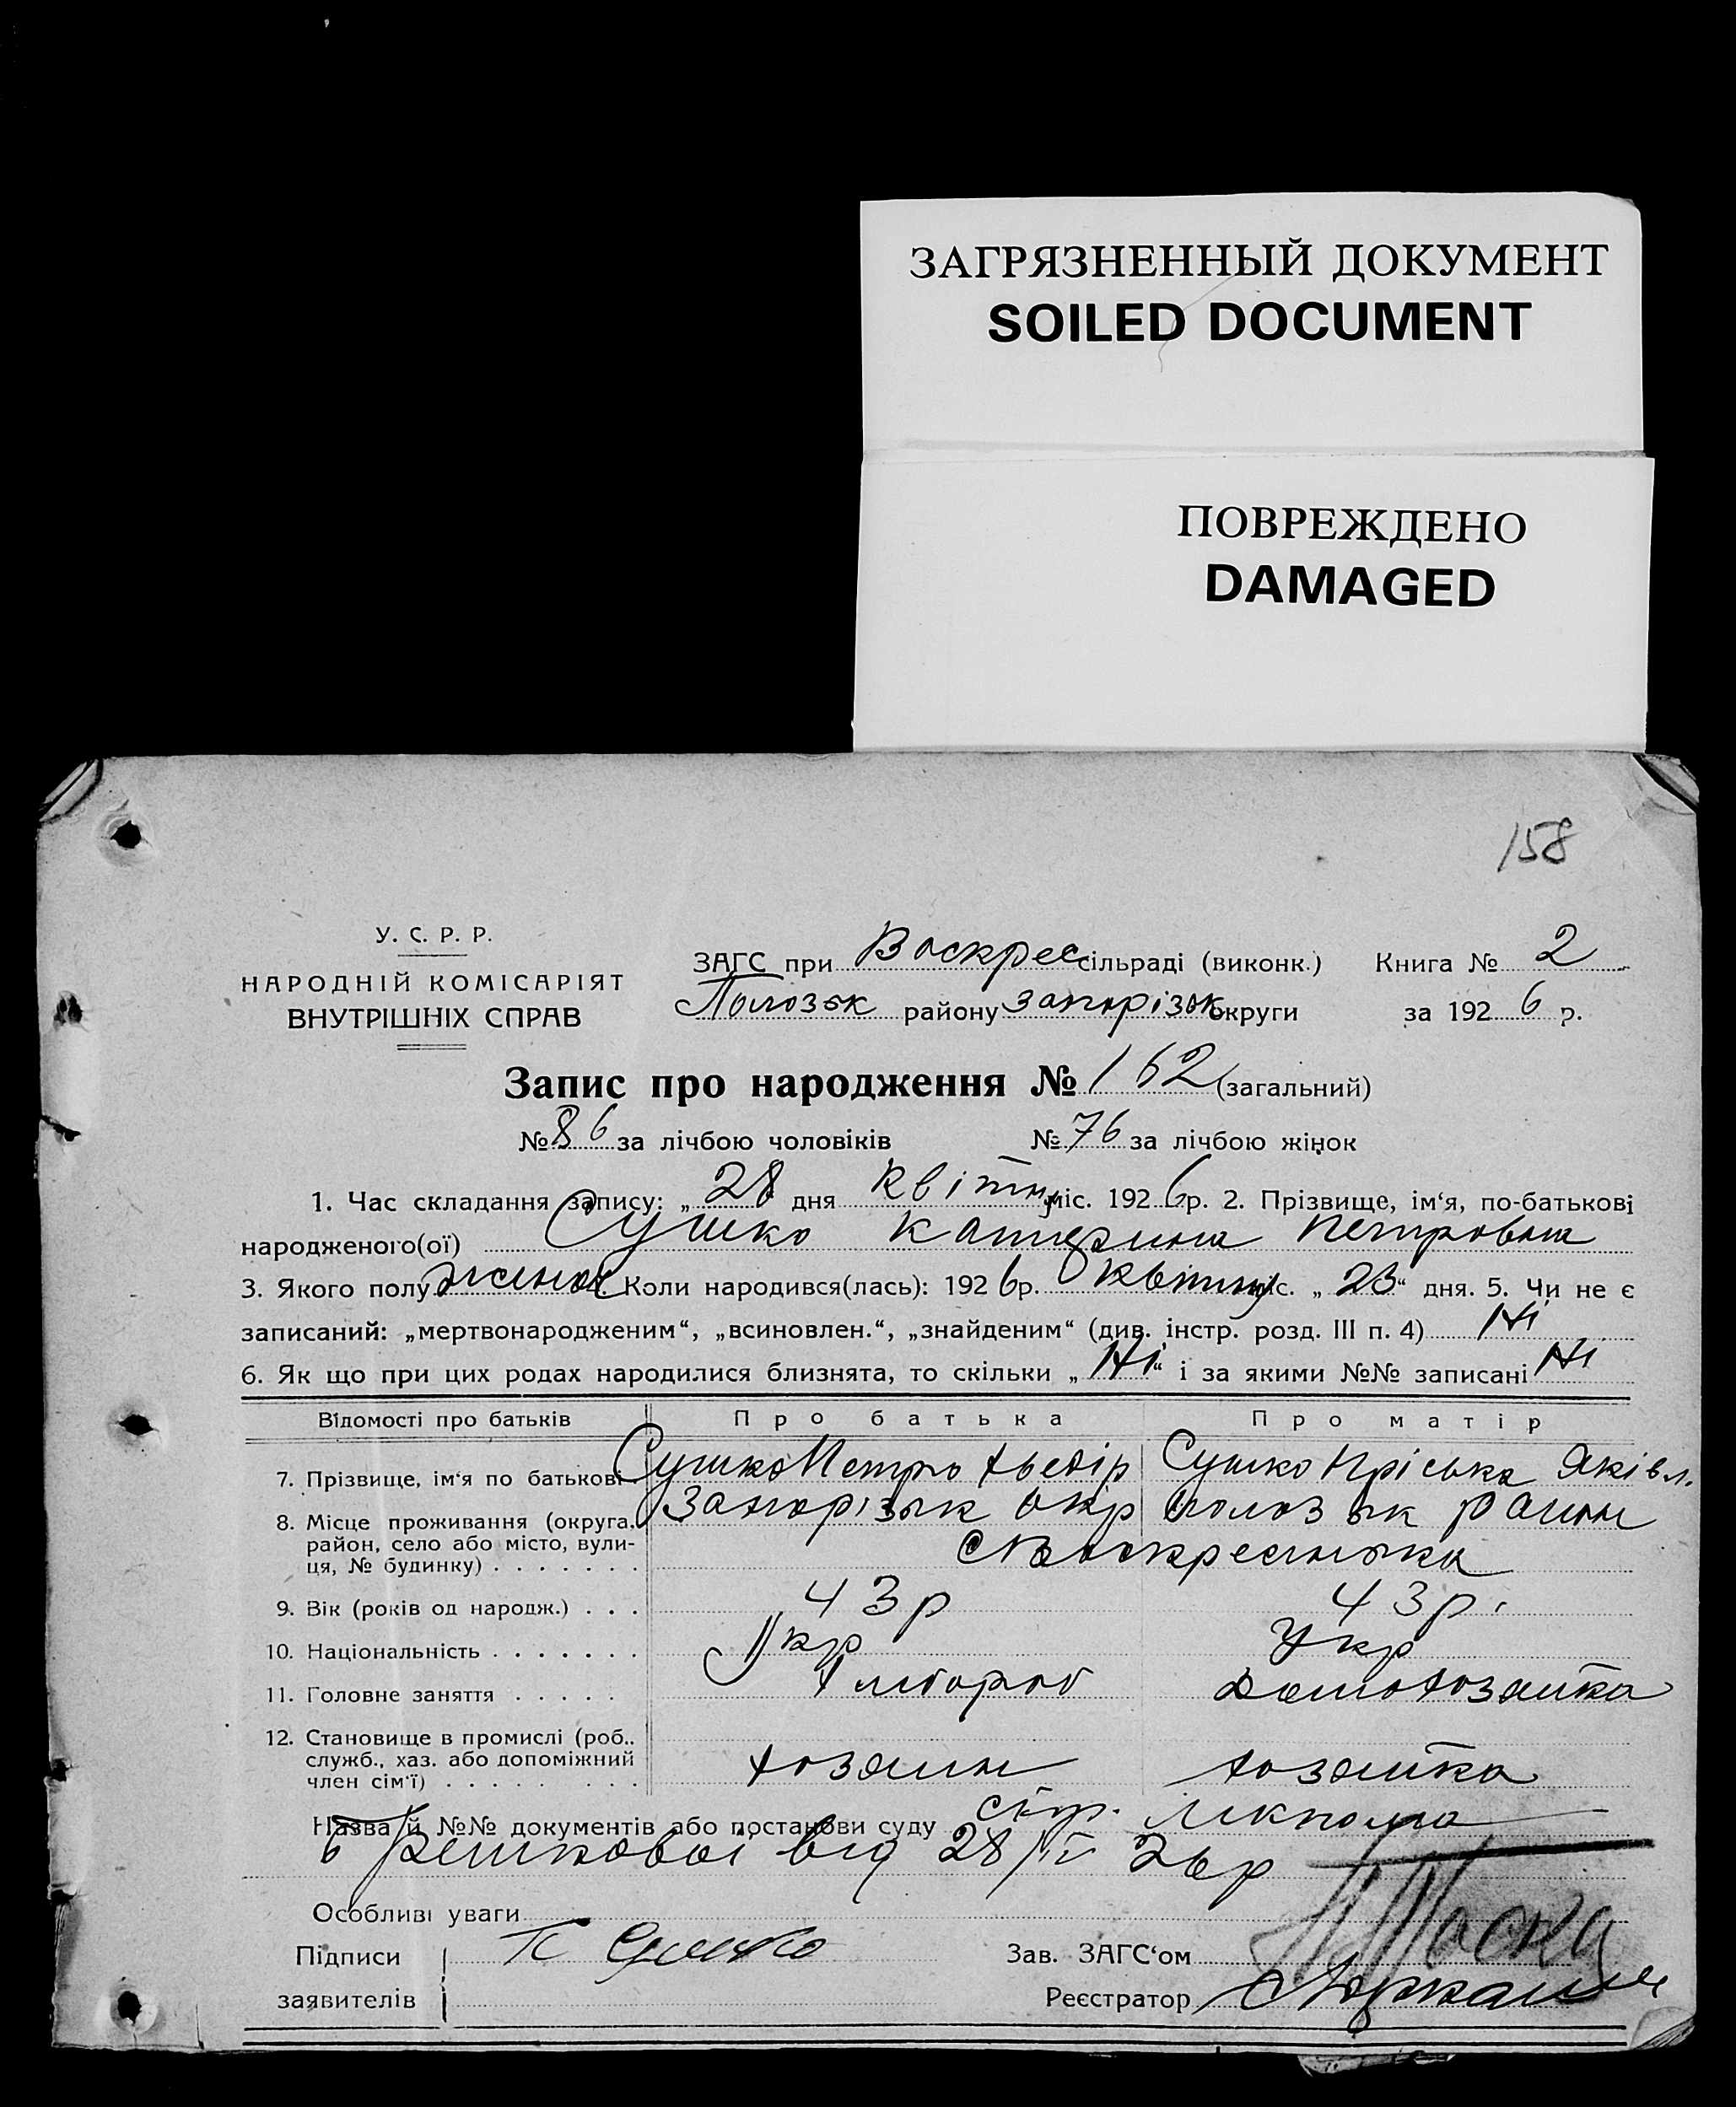 ЗАГРЯЗНЕННЫЙ ДОКУМЕНТ
SOILED DOCUMENT
ПОВРЕЖДЕНО
DAMAGED
158
У. С. Р. Р.
НАРОДНІЙ КОМІСАРІЯТ
ВНУТРІШНІХ СПРАВ
ЗАГС при Воскрес сільраді (виконк.) Книга № 2
Полозьк району запорізьк округи за 1926 р.
Запис про народження № 162 (загальний)
№ 86 за лічбою чоловіків № 76 за лічбою жінок
1. Час складання запису: „28 дня Квітня міс. 1926 р. 2. Прізвище, ім‘я, по-батькові
народженого(ої) Сушко Катерина Петровна
3. Якого полу жіноч Коли народився(лась): 1926 р. Квітня міс. „23“ дня. 5. Чи не є
записаний: „мертвонародженим“, „всиновлен.“, „знайденим“ (див. інстр. розд. III п. 4) Ні
6. Як що при цих родах народилися близнята, то скільки „Ні“ і за якими №№ записані Ні
Відомості про батьків Про батька Про матір
7. Прізвище, ім‘я по батькові Сушко Петро Хведір Сушко Пріська Яківл.
8. Місце проживання (округа, Запорізьк окр полозьк район
район, село або місто, вули- с Воскресенька
ця, № будинку)
9. Вік (років од народж.) 43 р 43 р.
10. Національність Укр Укр
11. Головне заняття Хлібороб Домохозяйка
12. Становище в промислі (роб.. 
служб., хаз. або допоміжний хозяин хозяйка
член сім‘ї)
Назва й №№ документів або постанови суду
від 28/IV 26 р
Особливі уваги
Підписи П Сушко Зав. ЗАГС‘ом
заявителів Реєстратор